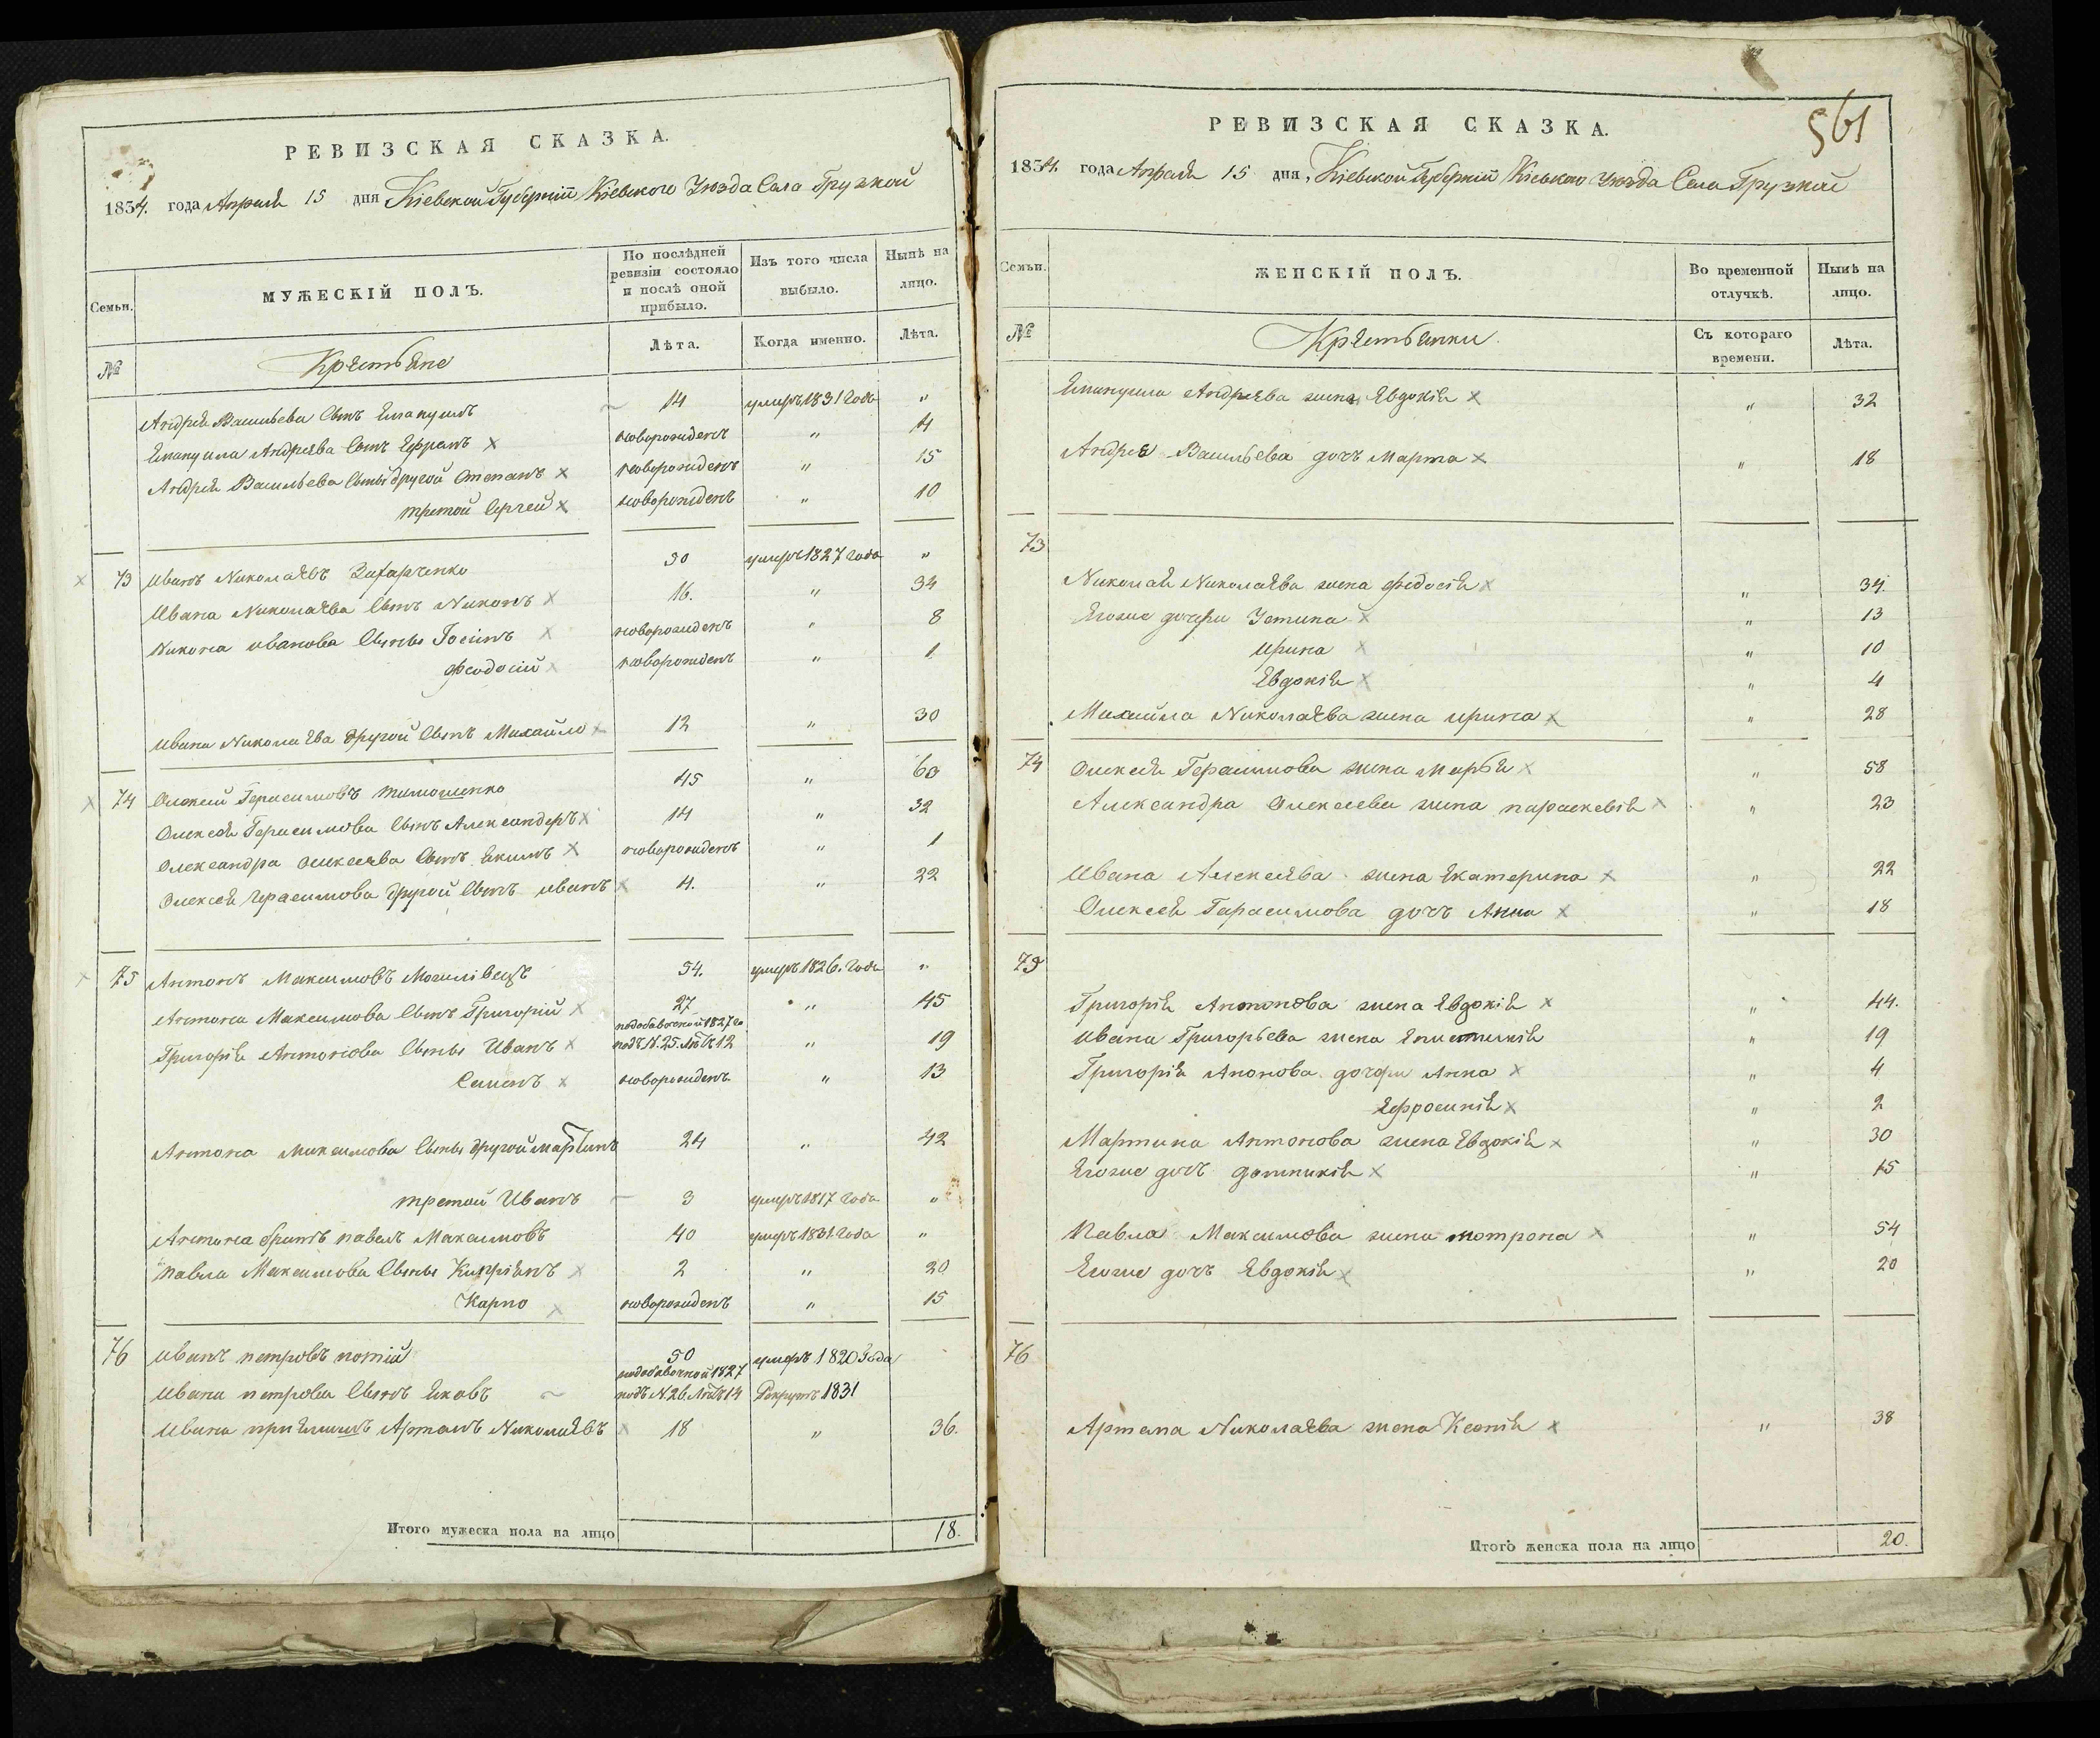 РЕВИЗСКАЯ СКАЗКА.
1834. года Апреля 15 дня Кіевской Губерніи Кіевского Уезда Села Грузкой
Семьи.
МУЖЕСКІЙ ПОЛЪ.
По послѣдней ревизіи состояло и послѣ оной прибыло.
Изъ того числа выбыло.
Нынѣ на лицо.
№
Крестьяне
Лѣта.
Когда именно.
Лѣта.
Андрея Васильева Сынъ 14 умеръ 1831 Года "
Андреева Сынъ Ефремъ x новорожденъ " 4
Андрея Васильева Сынъ другой Степанъ x новорожденъ " 15
третой Сергей x новорожденъ " 10
x 73 Иванъ Николаевъ Захарченко 30 умеръ 1827 Года "
Ивана Николаева Сынъ Никонъ x 16. " 34
Никона иванова Сыны Госипъ x новорожденъ " 8
Феодосий x новорожденъ " 1
Ивана Николаева другой Сынъ Михайло x 12 " 30
x 74 Олексей Герасимовъ тимошенко 45 " 63
Олексея Герасимова Сынъ Александеръ x 14 " 32
Олександра Олексеева Сынъ Екимъ x новорожденъ " 1
Олексея Герасимова другой Сынъ иванъ x 4. " 22
x 75 Антонъ Максимовъ Могилівецъ 54. умеръ 1826. Года "
Антона Максимова Сынъ Григорій x 27 " 45
Григорія Антонова Сыны Иванъ x подобавочной 1827 го подъ №. 25. Летъ 12 " 19
Семенъ x новорожденъ " 13
Антона Максимова Сыны другой мартинъ 24 " 42
третой Иванъ 3 умеръ 1817 Года "
Антона братъ павелъ Максимовъ 40 умеръ 1831 Года "
павла Максимова Сыны Кипріянъ x 2 " 20
Карпо x новорожденъ " 15
76 Иванъ петровъ потій 50 умеръ 1820 Года
Ивана петрова Сынъ Яковъ подобавочной 1827 подъ №. 26. Летъ 14 Рекрутъ 1831
Ивана приемышъ Артемъ Николаевъ x 18 " 36.
Итого мужеска пола на лицо 18.
561
РЕВИЗСКАЯ СКАЗКА.
1834. года Апреля 15 дня, Кіевской Губерніи Кіевского Уезда Села Грузкой
Семьи.
ЖЕНСКІЙ ПОЛЪ.
Во временной отлучкѣ.
Нынѣ на лицо.
№
Крестьянки
Съ котораго времени.
Лѣта.
Андреева жена Евдокія x " 32
Андрея Васильева дочъ Марта x " 18
73
Николая Николаева жена Феодосія x " 34.
Егоже дочери Устина x " 13
Ирина x " 10
Евдокія x " 4
Михайла Николаева жена ирина x " 28
74 Олексея Герасимова жена Марья x " 58
Александра Олексеева жена параскевія x " 23
Ивана Алексеева жена Екатерина x " 22
Олексея Гарасимова дочъ Анна x " 18
75
Григорія Антонова жена Евдокія x " 44.
Ивана Григорьева жена Епистимія " 19
Григорія Анонова дочери Анна x " 4
Ефросинія x " 2
Мартина Антонова жена Евдокія x " 30
Егоже дочъ домникія x " 15
Павла Максимова жена мотрона x " 54
Егоже дочъ Евдокія x " 20
76
Артема Николаева жена Ксенія x " 38
Итого женска пола на лицо 20.